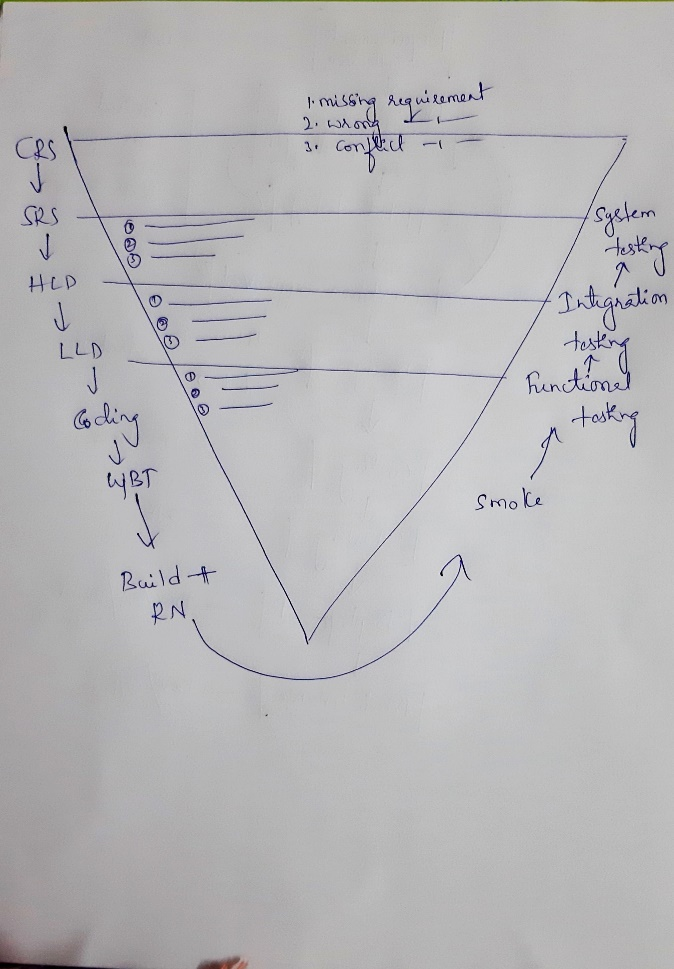 1. missing requirement
2. wrong —1—
3. conflict —1—
CRS
SRS
①
②
③
HLD
①
②
③
LLD
①
②
③
Coding
WBT
Build #
RN
System
testing
Integration
testing
Functional
testing
Smoke